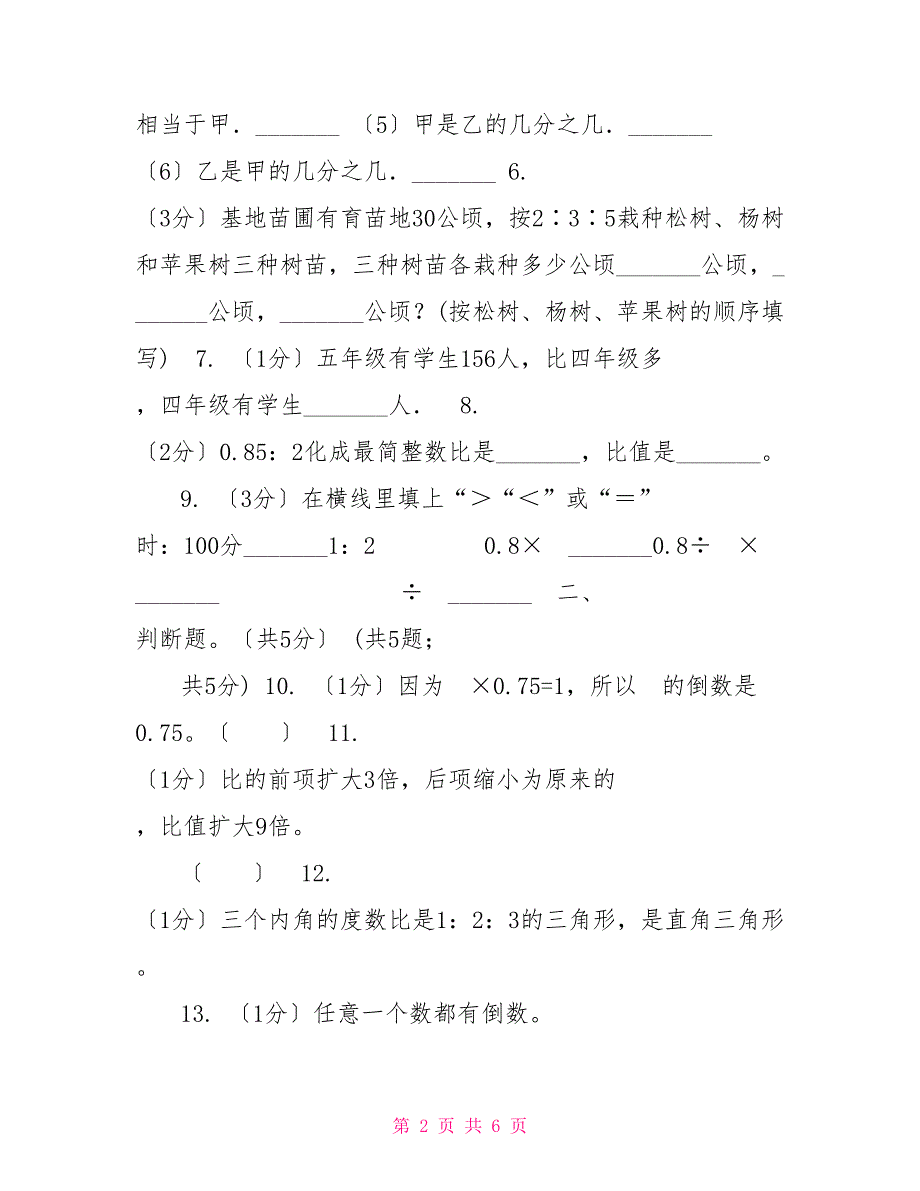 相当于甲．_______ 〔5〕甲是乙的几分之几．_______
〔6〕乙是甲的几分之几．_______ 6.
〔3分〕基地苗圃有育苗地30公顷，按2∶3∶5栽种松树、杨树
和苹果树三种树苗，三种树苗各栽种多少公顷_______公顷，_
______公顷，_______公顷？(按松树、杨树、苹果树的顺序填
写) 7. 〔1分〕五年级有学生156人，比四年级多
，四年级有学生_______人． 8.
〔2分〕0.85：2化成最简整数比是_______，比值是_______。
9. 〔3分〕在横线里填上“＞“＜”或“＝”
时：100分_______1：2 0.8× _______0.8÷ ×
_______ ÷ _______ 二、
判断题。〔共5分〕 (共5题；
共5分) 10. 〔1分〕因为 ×0.75=1，所以 的倒数是
0.75。〔 〕 11.
〔1分〕比的前项扩大3倍，后项缩小为原来的
，比值扩大9倍。
〔 〕 12.
〔1分〕三个内角的度数比是1：2：3的三角形，是直角三角形
。
13. 〔1分〕任意一个数都有倒数。
第 2 页 共 6 页